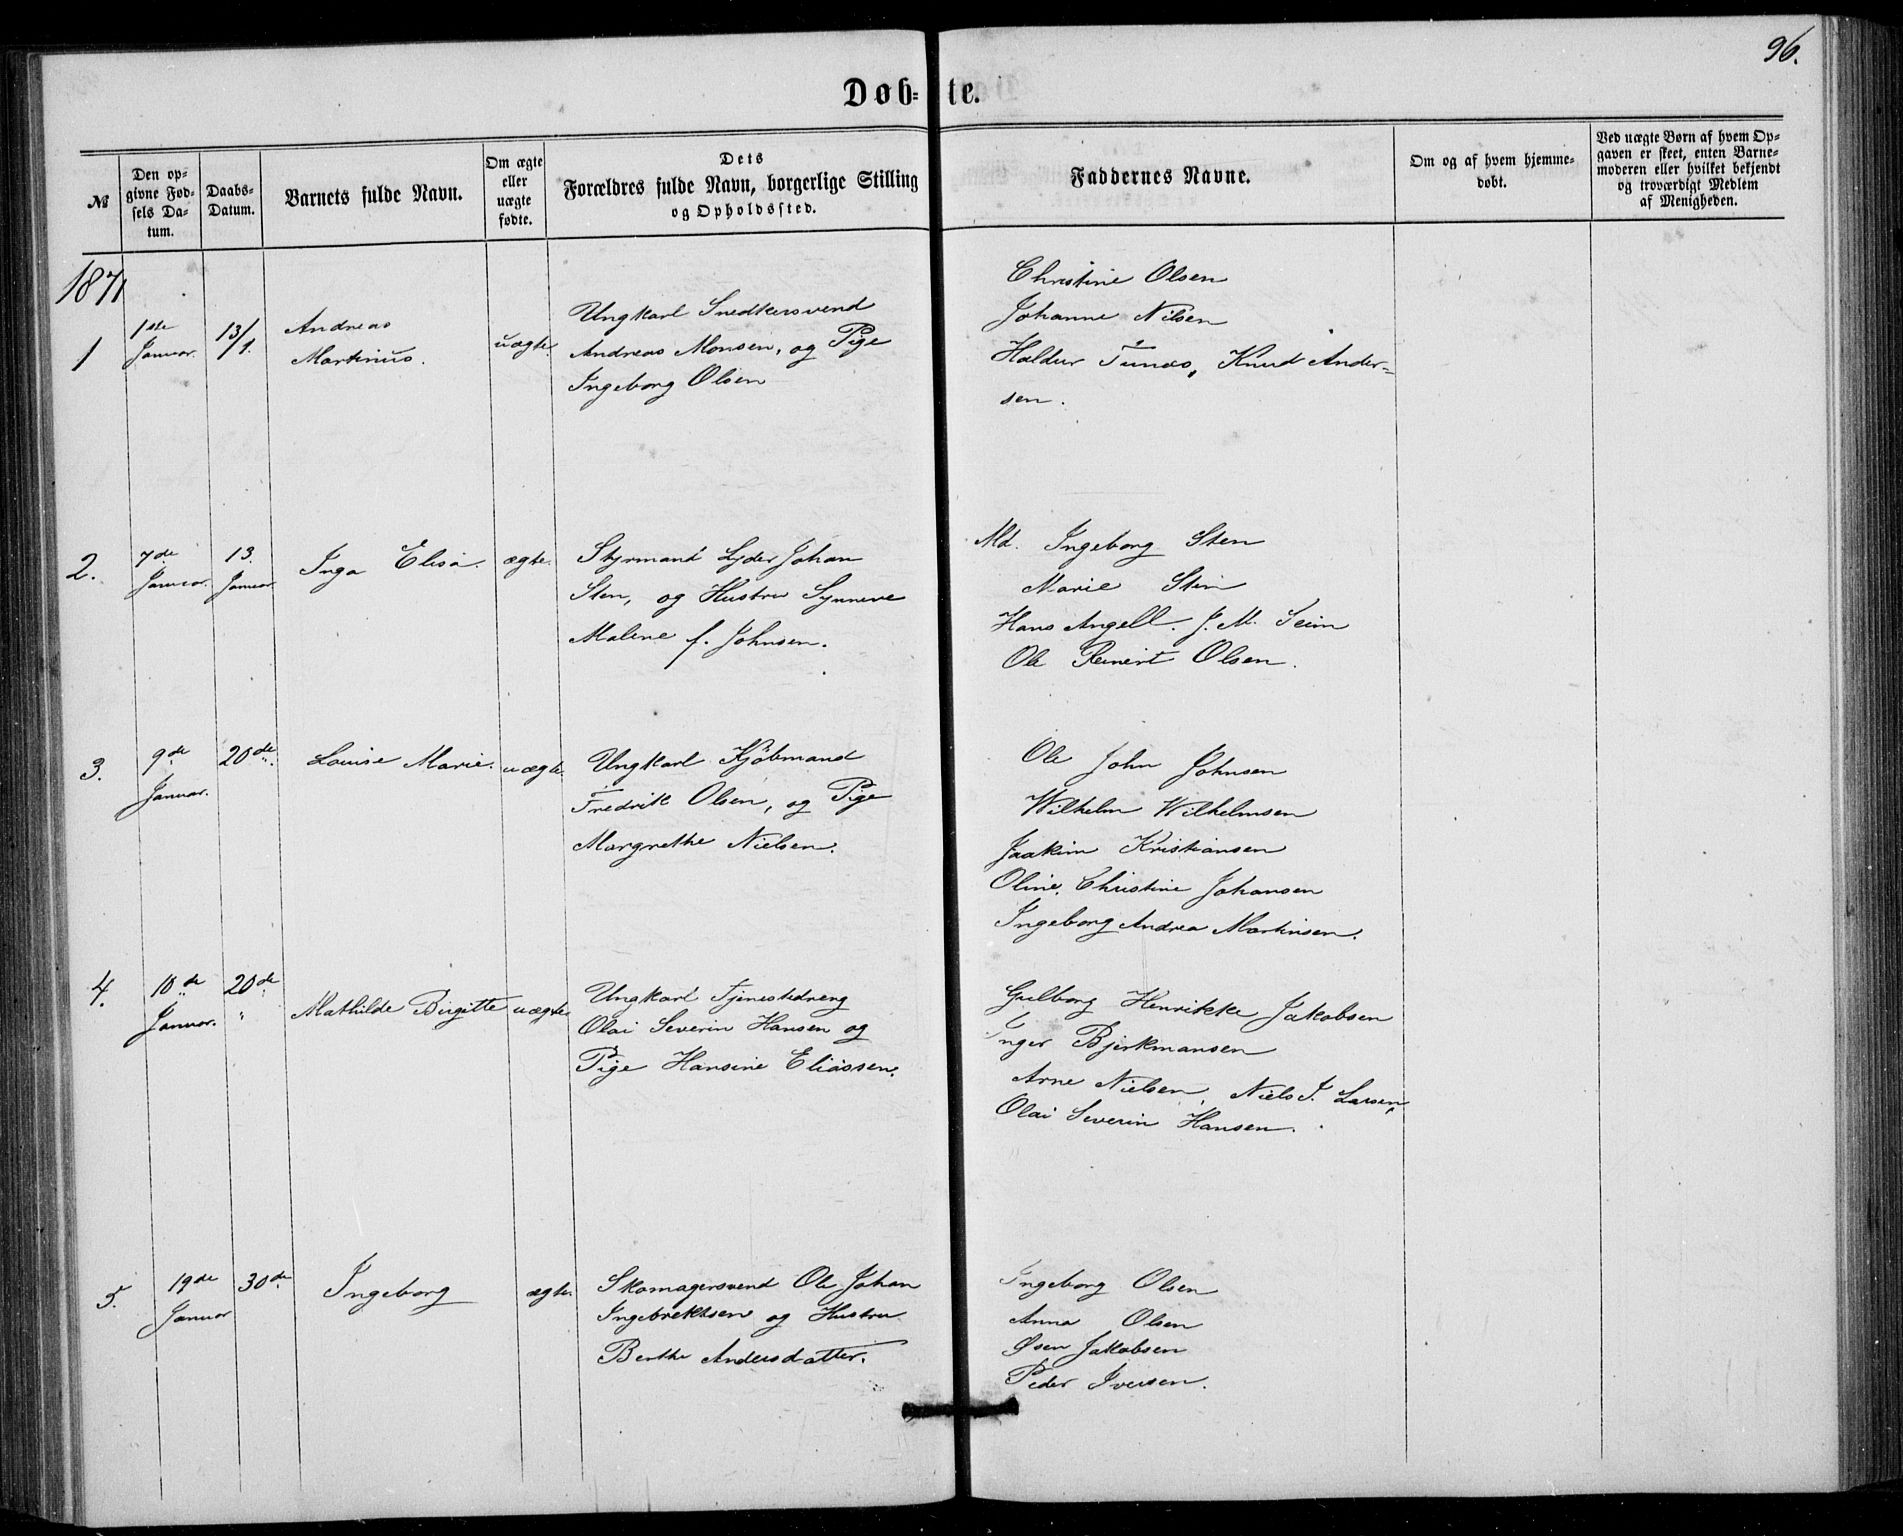 96.
Døb-te.
№
Den op-
givne Fød-
sels Da-
tum.
Daabs-
Datum.
Barnets fulde Navn.
Om ægte
eller
uægte
fødte.
Dets
Forældres fulde Navn, borgerlige Stilling
og Opholdssted.
Faddernes Navne.
Om og af hvem hjemme-
døbt.
Ved uægte Børn af hvem Op-
gaven er skeet, enten Barne-
moderen eller hvilket bekjendt
og troværdigt Medlem
af Menigheden.
1871
1
1ste
Januar.
13/1.
Andreas
Martinus.
uægte.
Ungkarl Snedkersvend
Andreas Monsen, og Pige
Ingeborg Olsen
Christine Olsen
Johanne Nilsen
Haldur Tunæs, Knud Ander-
sen.
2.
7de
Januar.
13.
Januar
Inga Elisa.
ægte.
Styrmand Lyder Johan
Sten, og Hustru Synneve
Malene f. Johnsen.
Md. Ingeborg Sten
Marie Stin
Hans Angell. J. M. Seim
Ole Reinert Olsen.
3.
9de
Januar.
20de.
Louise Marie.
uægte.
Ungkarl Kjöbmand
Fredrik Olsen, og Pige
Margrethe Nielsen.
Ole John Johnsen
Wilhelm Wilhelmsen
Joakim Kristiansen
Oline Christine Johansen
Ingeborg Andrea Martinsen.
4.
10de
Januar.
20de
"
Mathilde Birgitte
uægte.
Ungkarl Tjenestedreng
Olai Severin Hansen og
Pige Hansine Eliassen.
Gulborg Henrikke Jakobsen
Inger Bjerkmansen
Arne Nielsen, Niels J. Larsen,
Olai Severin Hansen.
5.
19de
Januar
30de.
Ingeborg
ægte.
Skomagersvend Ole Johan
Ingebrektsen og Hustru
Berthe Andersdatter.
Ingeborg Olsen
Anna Olsen
Jakobsen
Peder Iversen.